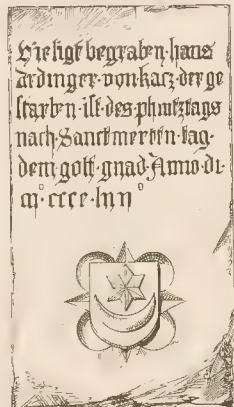 Hie ligt begraben hans
Ardinger von kacz der ge
starben ist des phintztags
nach Sanct merten tag
dem gott gnad Anno di
m° cccc lvii°